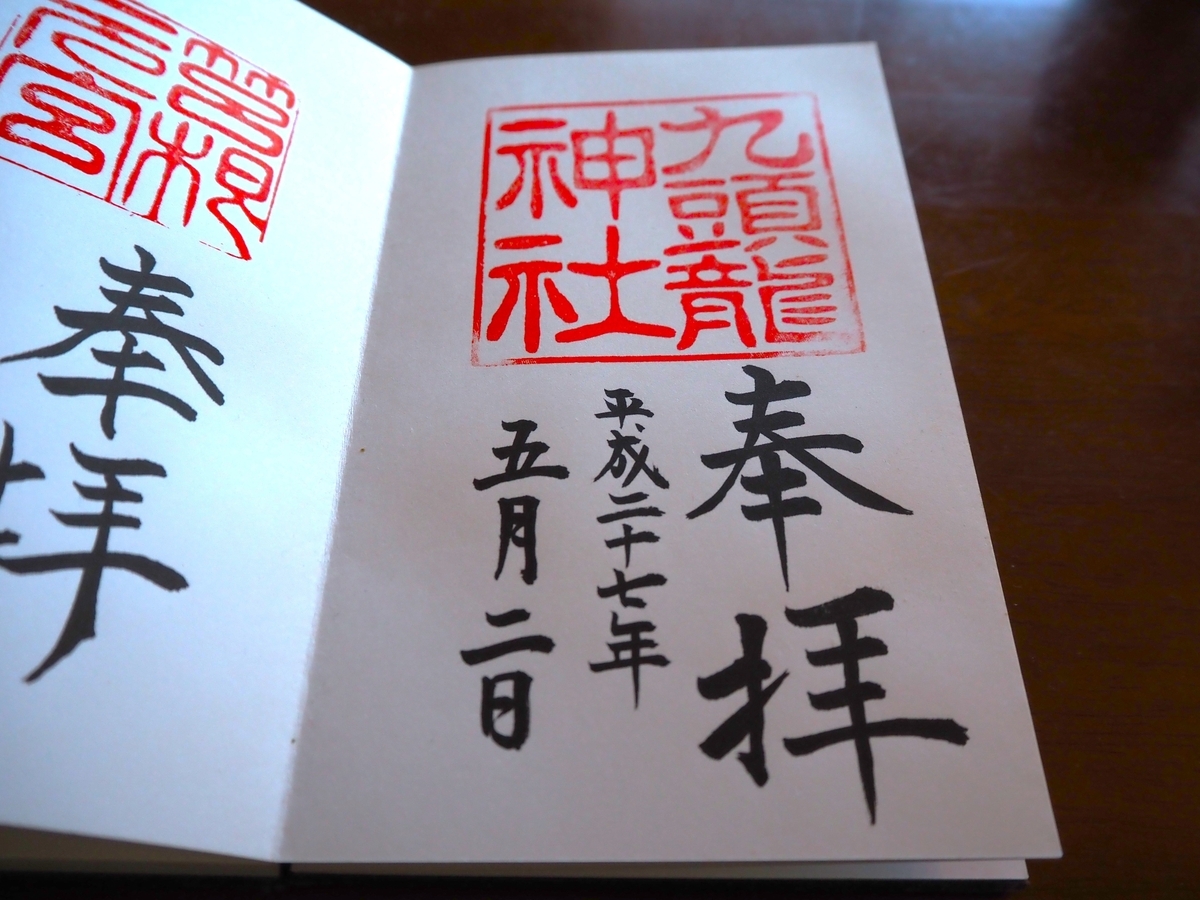 九頭龍
神社
奉拝
平成二十七年
五月二日
筥根
元宮
奉拝